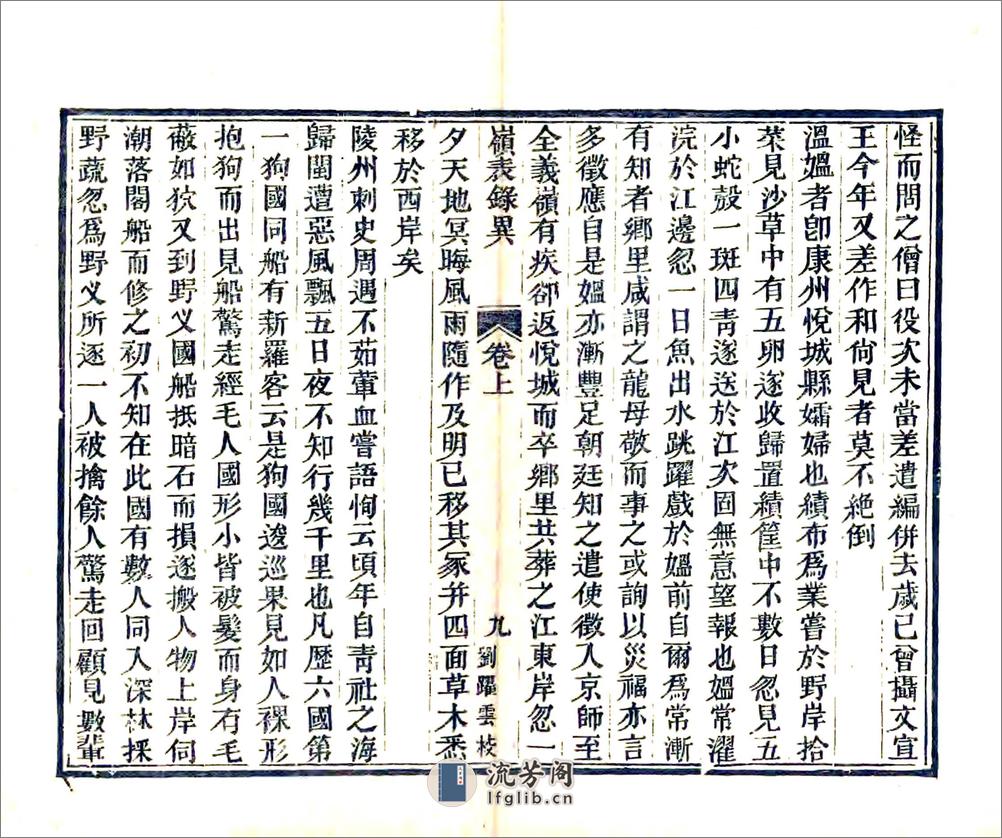 怪而問之僧曰役次未當差遣編併去歲已曾攝文宣
王今年又差作和尚見者莫不絶倒
溫媼者卽康州悅城縣孀婦也績布爲業嘗於野岸拾
菜見沙草中有五卵遂收歸置績筐中不數日忽見五
小蛇殼一斑四青遂送於江次固無意望報也媼常濯
浣於江邊忽一日魚出水跳躍戲於媼前自爾爲常漸
有知者鄉里咸謂之龍母敬而事之或詢以災福亦言
多徵應自是媼亦漸豐足朝廷知之遣使徵入京師至
全義嶺有疾卻返悅城而卒鄉里共葬之江東岸忽一
嶺表錄異 卷上 九 劉躍雲校
夕天地冥晦風雨隨作及明已移其冢并四面草木悉
移於西岸矣
陵州刺史周遇不茹葷血嘗語恂云頃年自青社之海
歸閩遭惡風飄五日夜不知行幾千里也凡歷六國第
一狗國同船有新羅客云是狗國逡巡果見如人裸形
抱狗而出見船驚走經毛人國形小皆被髮而身有毛
蔽如狖又到野义國船抵暗石而損遂搬人物上岸伺
潮落閣船而修之初不知在此國有數人同入深林採
野蔬忽爲野义所逐一人被擒餘人驚走回顧見數輩
流芳阁
lfglib.cn